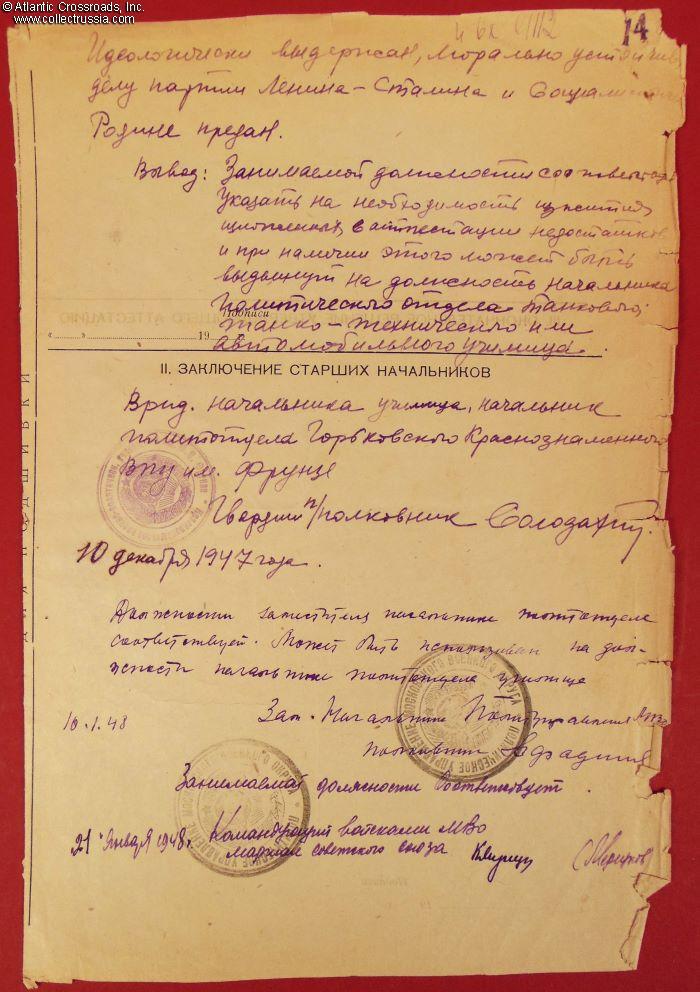 © Atlantic Crossroads, Inc.
www.collectrussia.com
14
Идеологически выдержан, морально устойчив
делу партии Ленина-Сталина и Социалистич
Родине предан.
Вывод: Занимаемой должности соответствует
Указать на необходимость изжития
в аттестации недостатков
и при наличии этого может быть
выдвинут на должность начальника
политического отдела танкового,
Подписи
19
танко-технического или
автомобильного училища.
II. ЗАКЛЮЧЕНИЕ СТАРШИХ НАЧАЛЬНИКОВ
Врид. начальника училища, начальник
политотдела Горьковского Краснознаменного
ВПУ им. Фрунзе
Гвардии п/полковник
10 декабря 1947 года.
Должности заместителя начальника политотдела
соответствует. Может быть использован на долж-
ности начальника политотдела училища
10.1.48
Зам. Начальника Политуправления МВО
полковник
Занимаемой должности соответствует.
21 января 1948г. Командующий войсками МВО
маршал советского союза
(Мерецков)